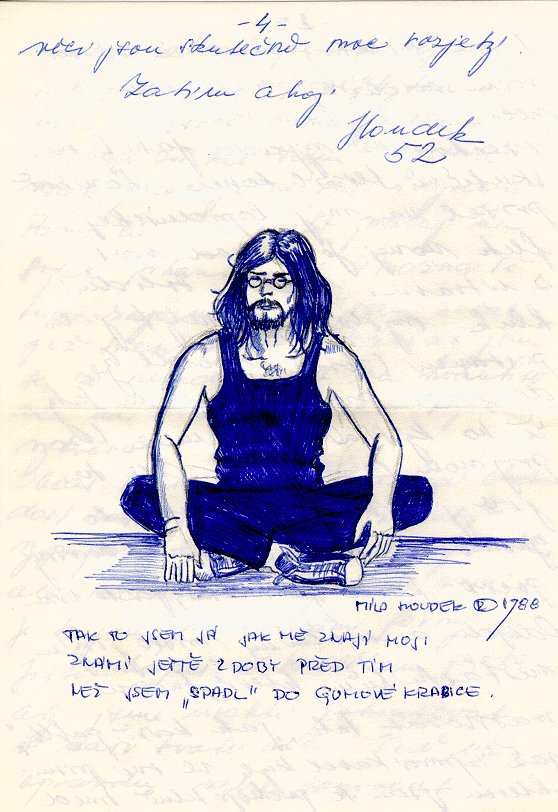 - 4 -
věci jsou skutečně moc rozjetý.
Zatím ahoj.
Houdek
52
MILA HOUDEK ® 1988
TAK TO JSEM JÁ JAK MĚ ZNAJÍ MOJI
ZNÁMÍ JEŠTĚ Z DOBY PŘED TÍM
NEŽ JSEM „SPADL" DO GUMOVÉ KRABICE.